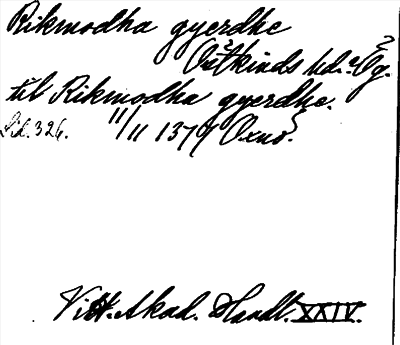 Rikmodha gyerdhe
Östkinds hd. Ög.
til Rikmodha gyerdhe.
Sid. 326. 11/11 1379 Oxnö.
Vitt. Akad. Handl. XXIV.